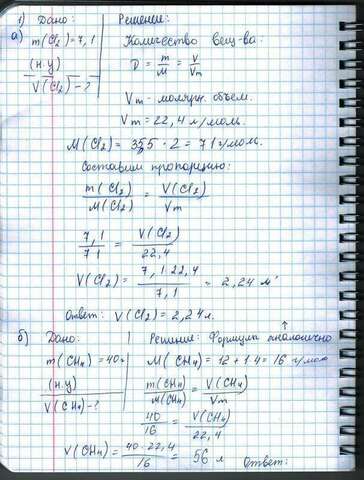 1) Дано: Решение:
а) m(Cl₂)=7,1 Количество вещ-ва:
(н.у) ν = m/M = V/Vm
V(Cl₂)-?
Vm - молярн. объем.
Vm = 22,4 л/моль.
M(Cl₂) = 35,5 · 2 = 71 г/моль.
Составим пропорцию:
m(Cl₂)/M(Cl₂) = V(Cl₂)/Vm
7,1/71 = V(Cl₂)/22,4
V(Cl₂) = 7,1·22,4/7,1 = 2,24 л
Ответ: V(Cl₂) = 2,24л.
б) Дано: Решение: Формулы аналогично
m(CH₄) = 40г M(CH₄) = 12 + 1·4 = 16 г/моль
(н.у) m(CH₄)/M(CH₄) = V(CH₄)/Vm
V(CH₄)-? 40/16 = V(CH₄)/22,4
V(CH₄) = 40·22,4/16 = 56 л Ответ: